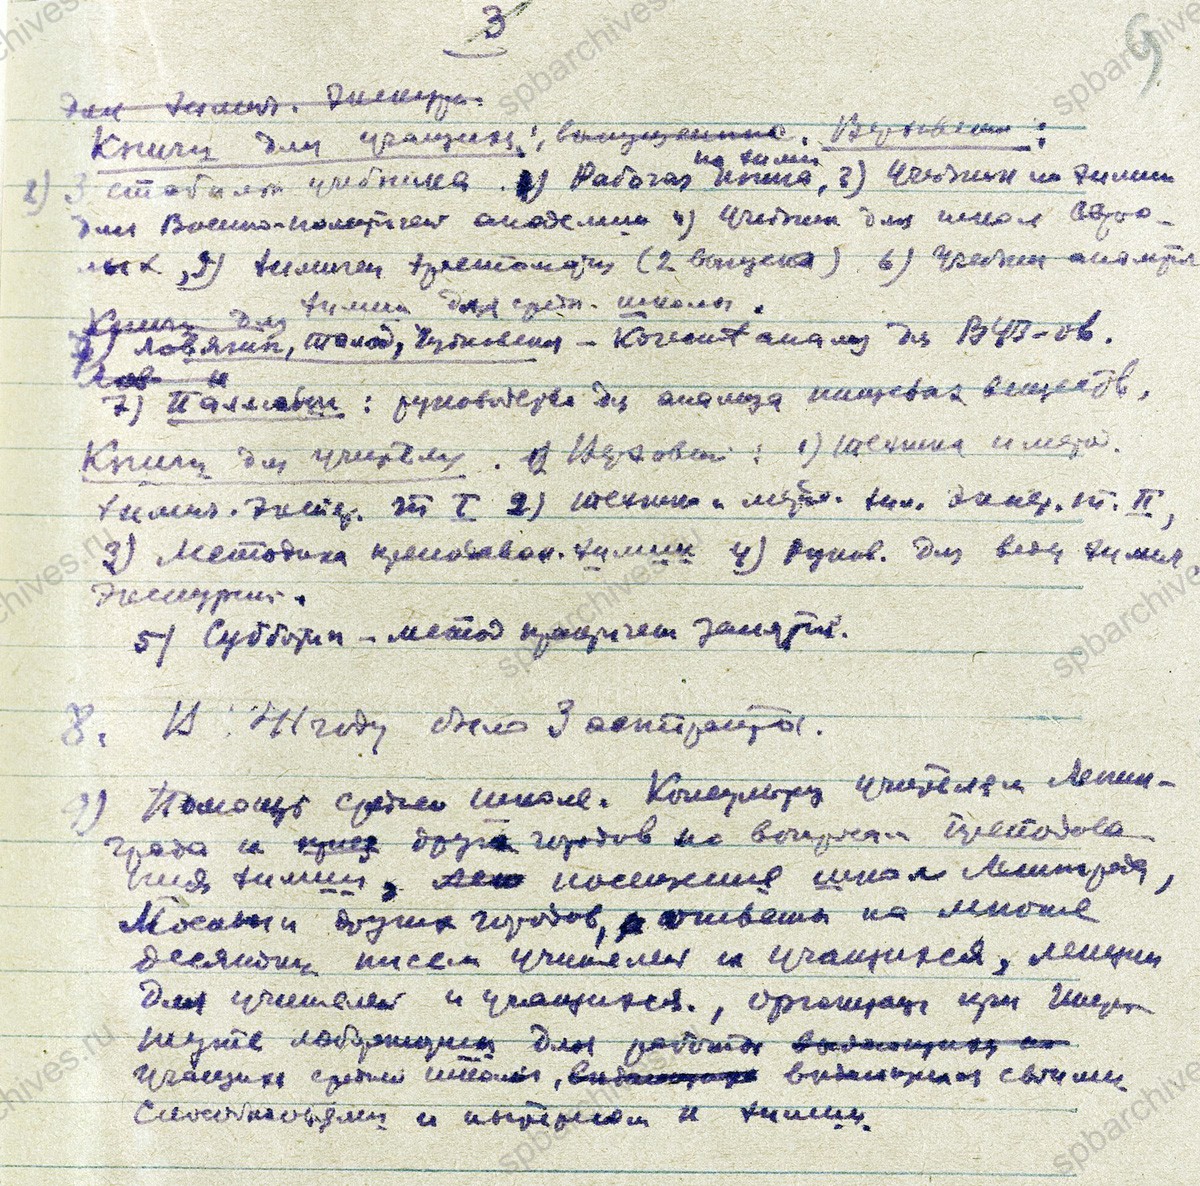 3
9
для химич. экскурс.
Книги для учащихся: выпущенные. Верховский:
1) 3 стабильн учебника. 2) Рабочая книга по химии, 3) Учебник по химии
для Военно-политичес академии 4) Учебник для школ взрос-
лых, 5) химическ хрестоматия (2 выпуска) 6) Учебник
химии для средн. школы.
Книги для
Ловягин, , - Качеств анализ для ВУЗ-ов.
Лов и
7) : руководство для анализа пищевых веществ.
Книги для учителя. Верховский: 1) Техника и метод.
химич. экспер. т I 2) Техника и метод. хим. экспер. т. II,
3) Методика преподаван. химии 4) Руков. для вед химич.
экскурсий.
5) Субботин - метод практичес занятий.
8. В 41 году было 3 аспиранта.
9) Помощь средней школе. Консультац учителям Ленин-
града и других городов по вопросам преподава
ния химии, посещение школ Ленинграда,
Москвы и других городов, ответы на многие
десятки писем учителей и учащихся, лекции
для учителей и учащихся., организац при Инсти
туте лаборатории для работы выдающихся
учащихся средней школы, выдающихся своими
способностями и интересом к химии.
spbarchives.ru